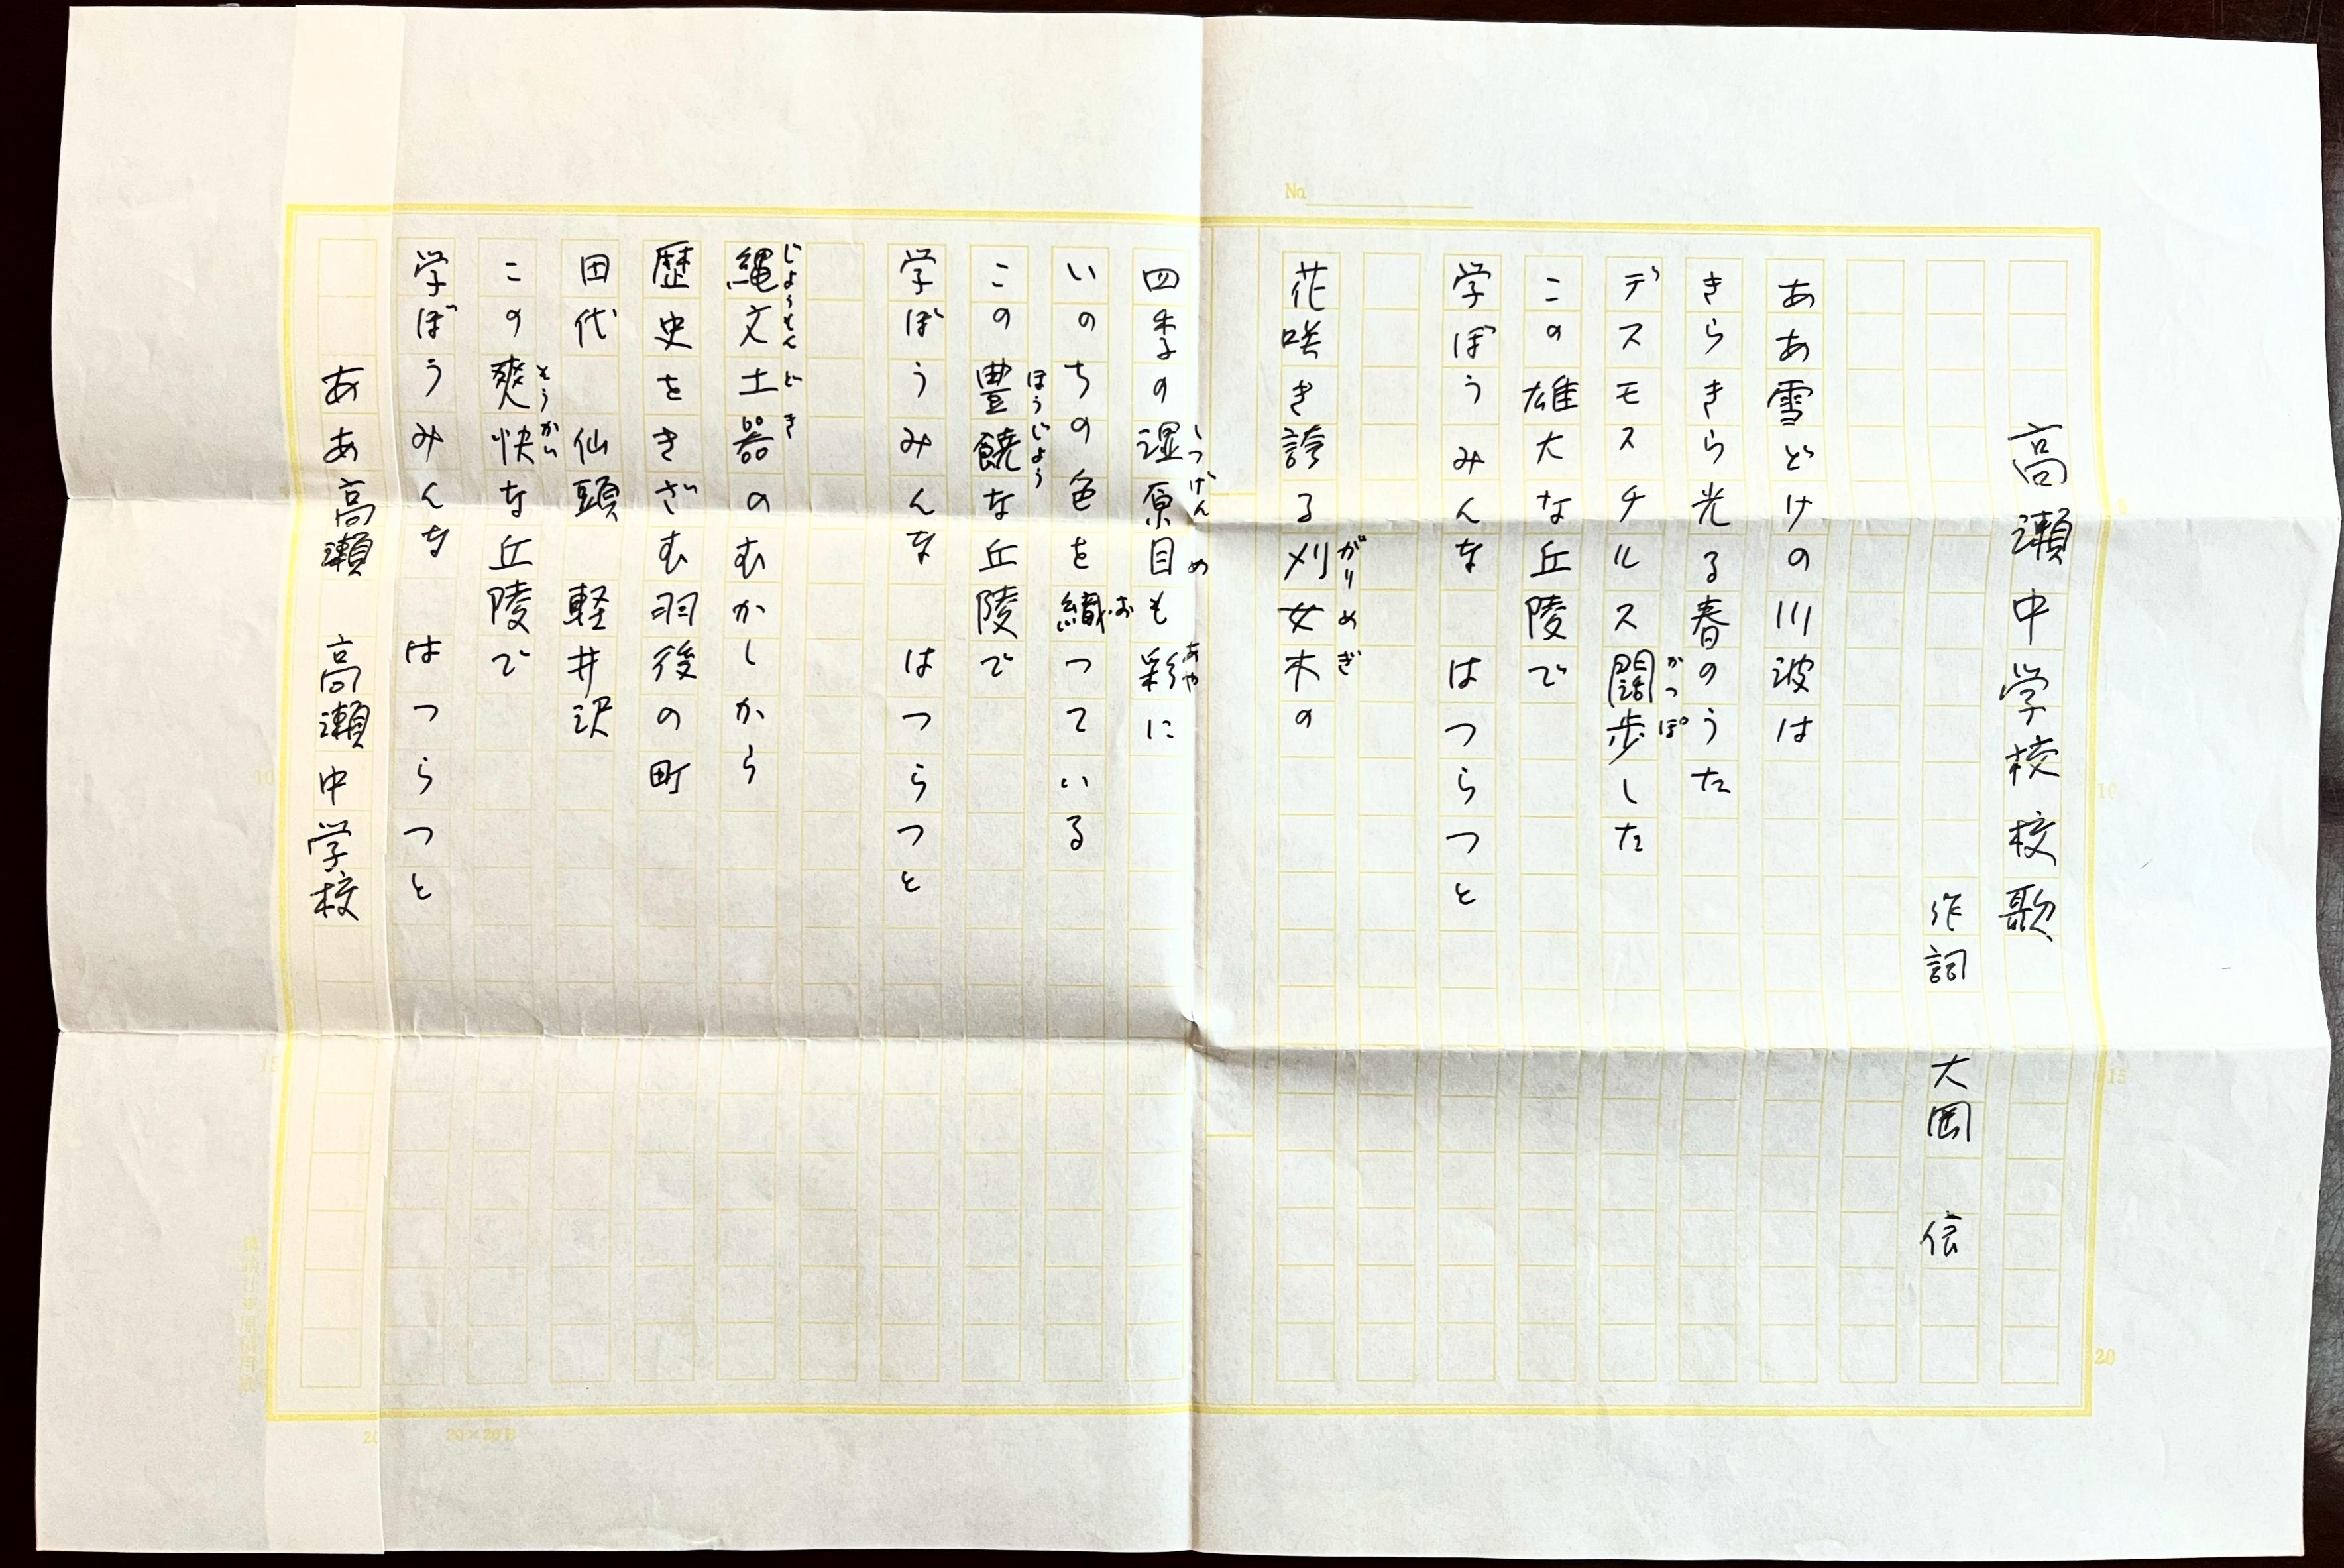 No.
高瀬中学校校歌
作詞 大岡 信
ああ雪どけの川波は
きらきら光る春のうた
デスモスチルス闊歩した
かっぽ
この雄大な丘陵で
学ぼうみんな はつらつと
花咲き誇る刈女木の
がりめぎ
四季の湿原目も彩に
しつげん め あや
いのちの色を織っている
お
この豊饒な丘陵で
ほうじょう
学ぼうみんな はつらつと
縄文土器のむかしから
じょうもんどき
歴史をきざむ羽後の町
田代 仙頭 軽井沢
この爽快な丘陵で
そうかい
学ぼうみんな はつらつと
ああ高瀬 高瀬中学校
10
15
20
10
15
20
20×20